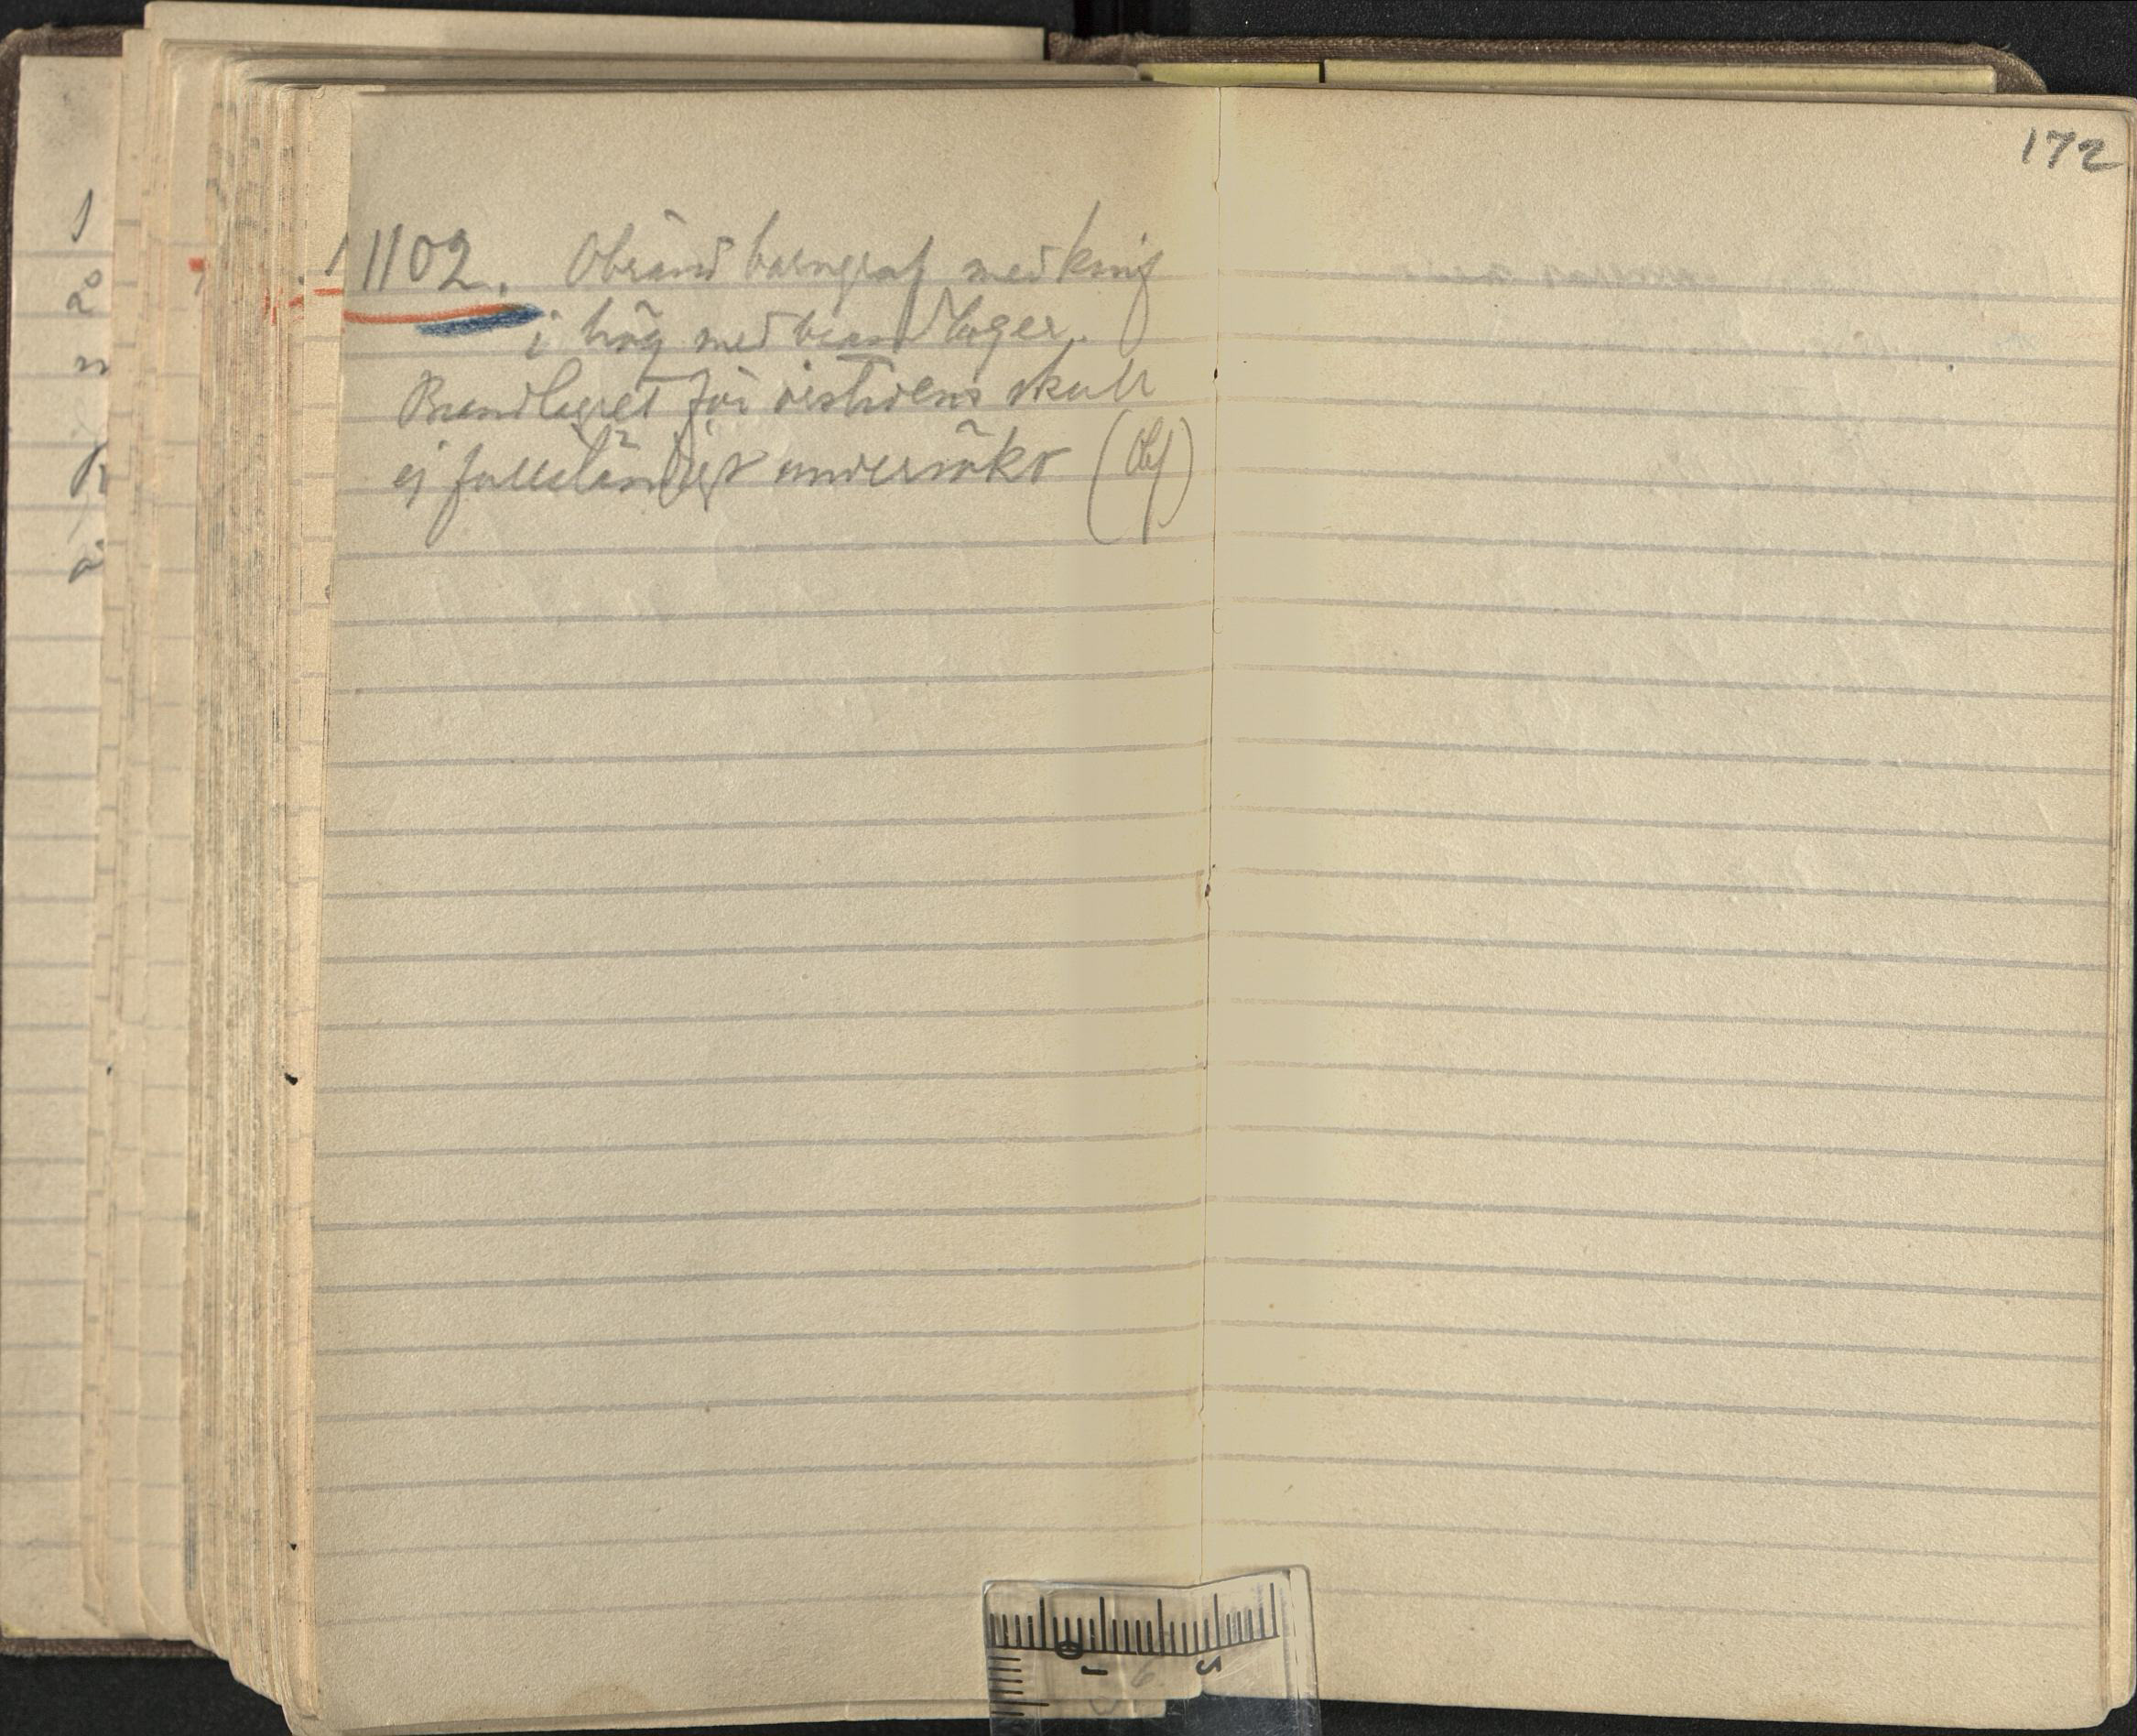 172
1102. Obränd barngraf med knif
i hög med brandlager.
Brandlagret för årstidens skull
ej fullständigt undersökt